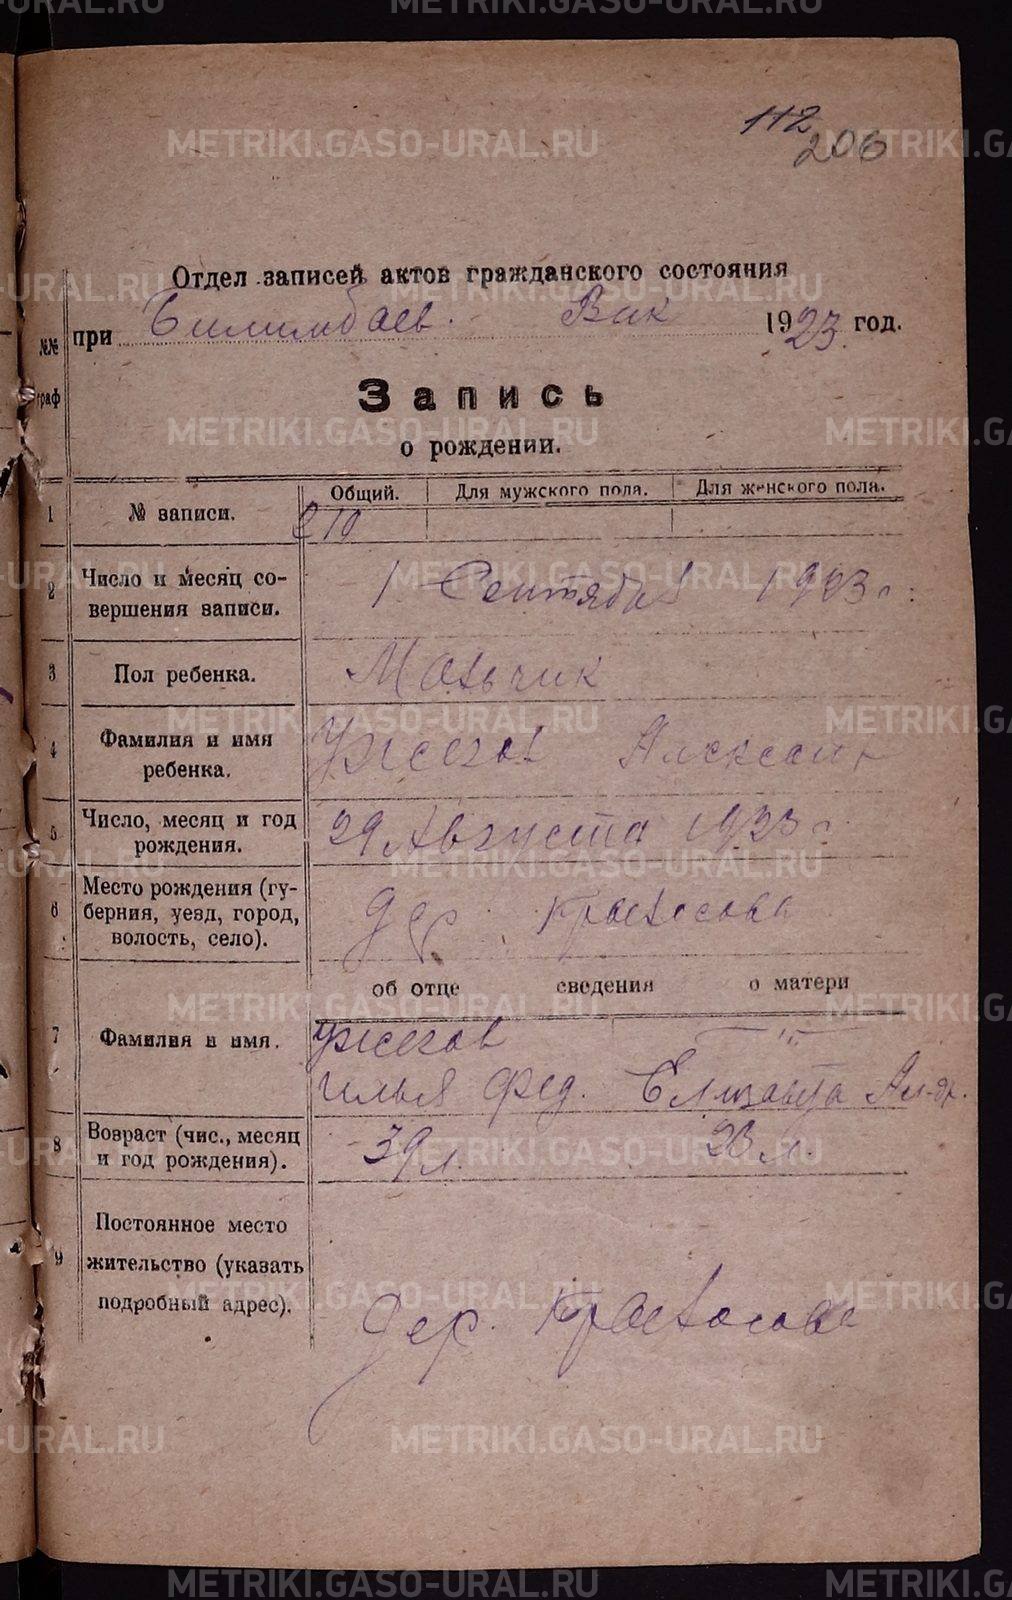 112
206
Отдел записей актов гражданского состояния
при Билимбаев. Вик 1923 год.
№№ граф
Запись
о рождении.
Общий. Для мужского пола. Для женского пола.
1 № записи. 210
2 Число и месяц со-
вершения записи. 1 Сентября 1923 г.
3 Пол ребенка. Мальчик
4 Фамилия и имя
ребенка. Ужегов Александр
5 Число, месяц и год
рождения. 29 Августа 1923 г.
6 Место рождения (гу-
берния, уезд, город,
волость, село). дер.
об отце сведения о матери
7 Фамилия и имя. Ужегов — " —
Илья Фед. Елизавета Ал-др.
8 Возраст (чис., месяц
и год рождения). 39 л. 23 л.
9 Постоянное место
жительство (указать
подробный адрес). дер.
METRIKI.GASO-URAL.RU